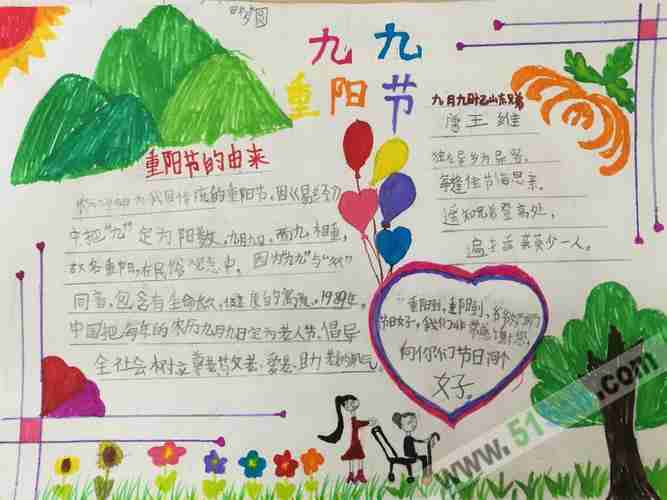 梦圆
九九
重阳节
重阳节的由来
农历九月九日为我国传统的重阳节,因《易经》
中把“九”定为阳数,九月九日,两九相重,
故名重阳,在民俗观念中,因为“九九”与“久久”
同音,包含有生命长久、健康长寿的寓意。1989年,
中国把每年的农历九月九日定为老人节,倡导
全社会树立尊老、敬老、爱老、助老的风气。
九月九日忆山东兄弟
唐 王 维
独在异乡为异客,
每逢佳节倍思亲。
遥知兄弟登高处,
遍插茱萸少一人。
重阳到,重阳到,
节日好,我们
向你们节日问个
好。
www.51
.com